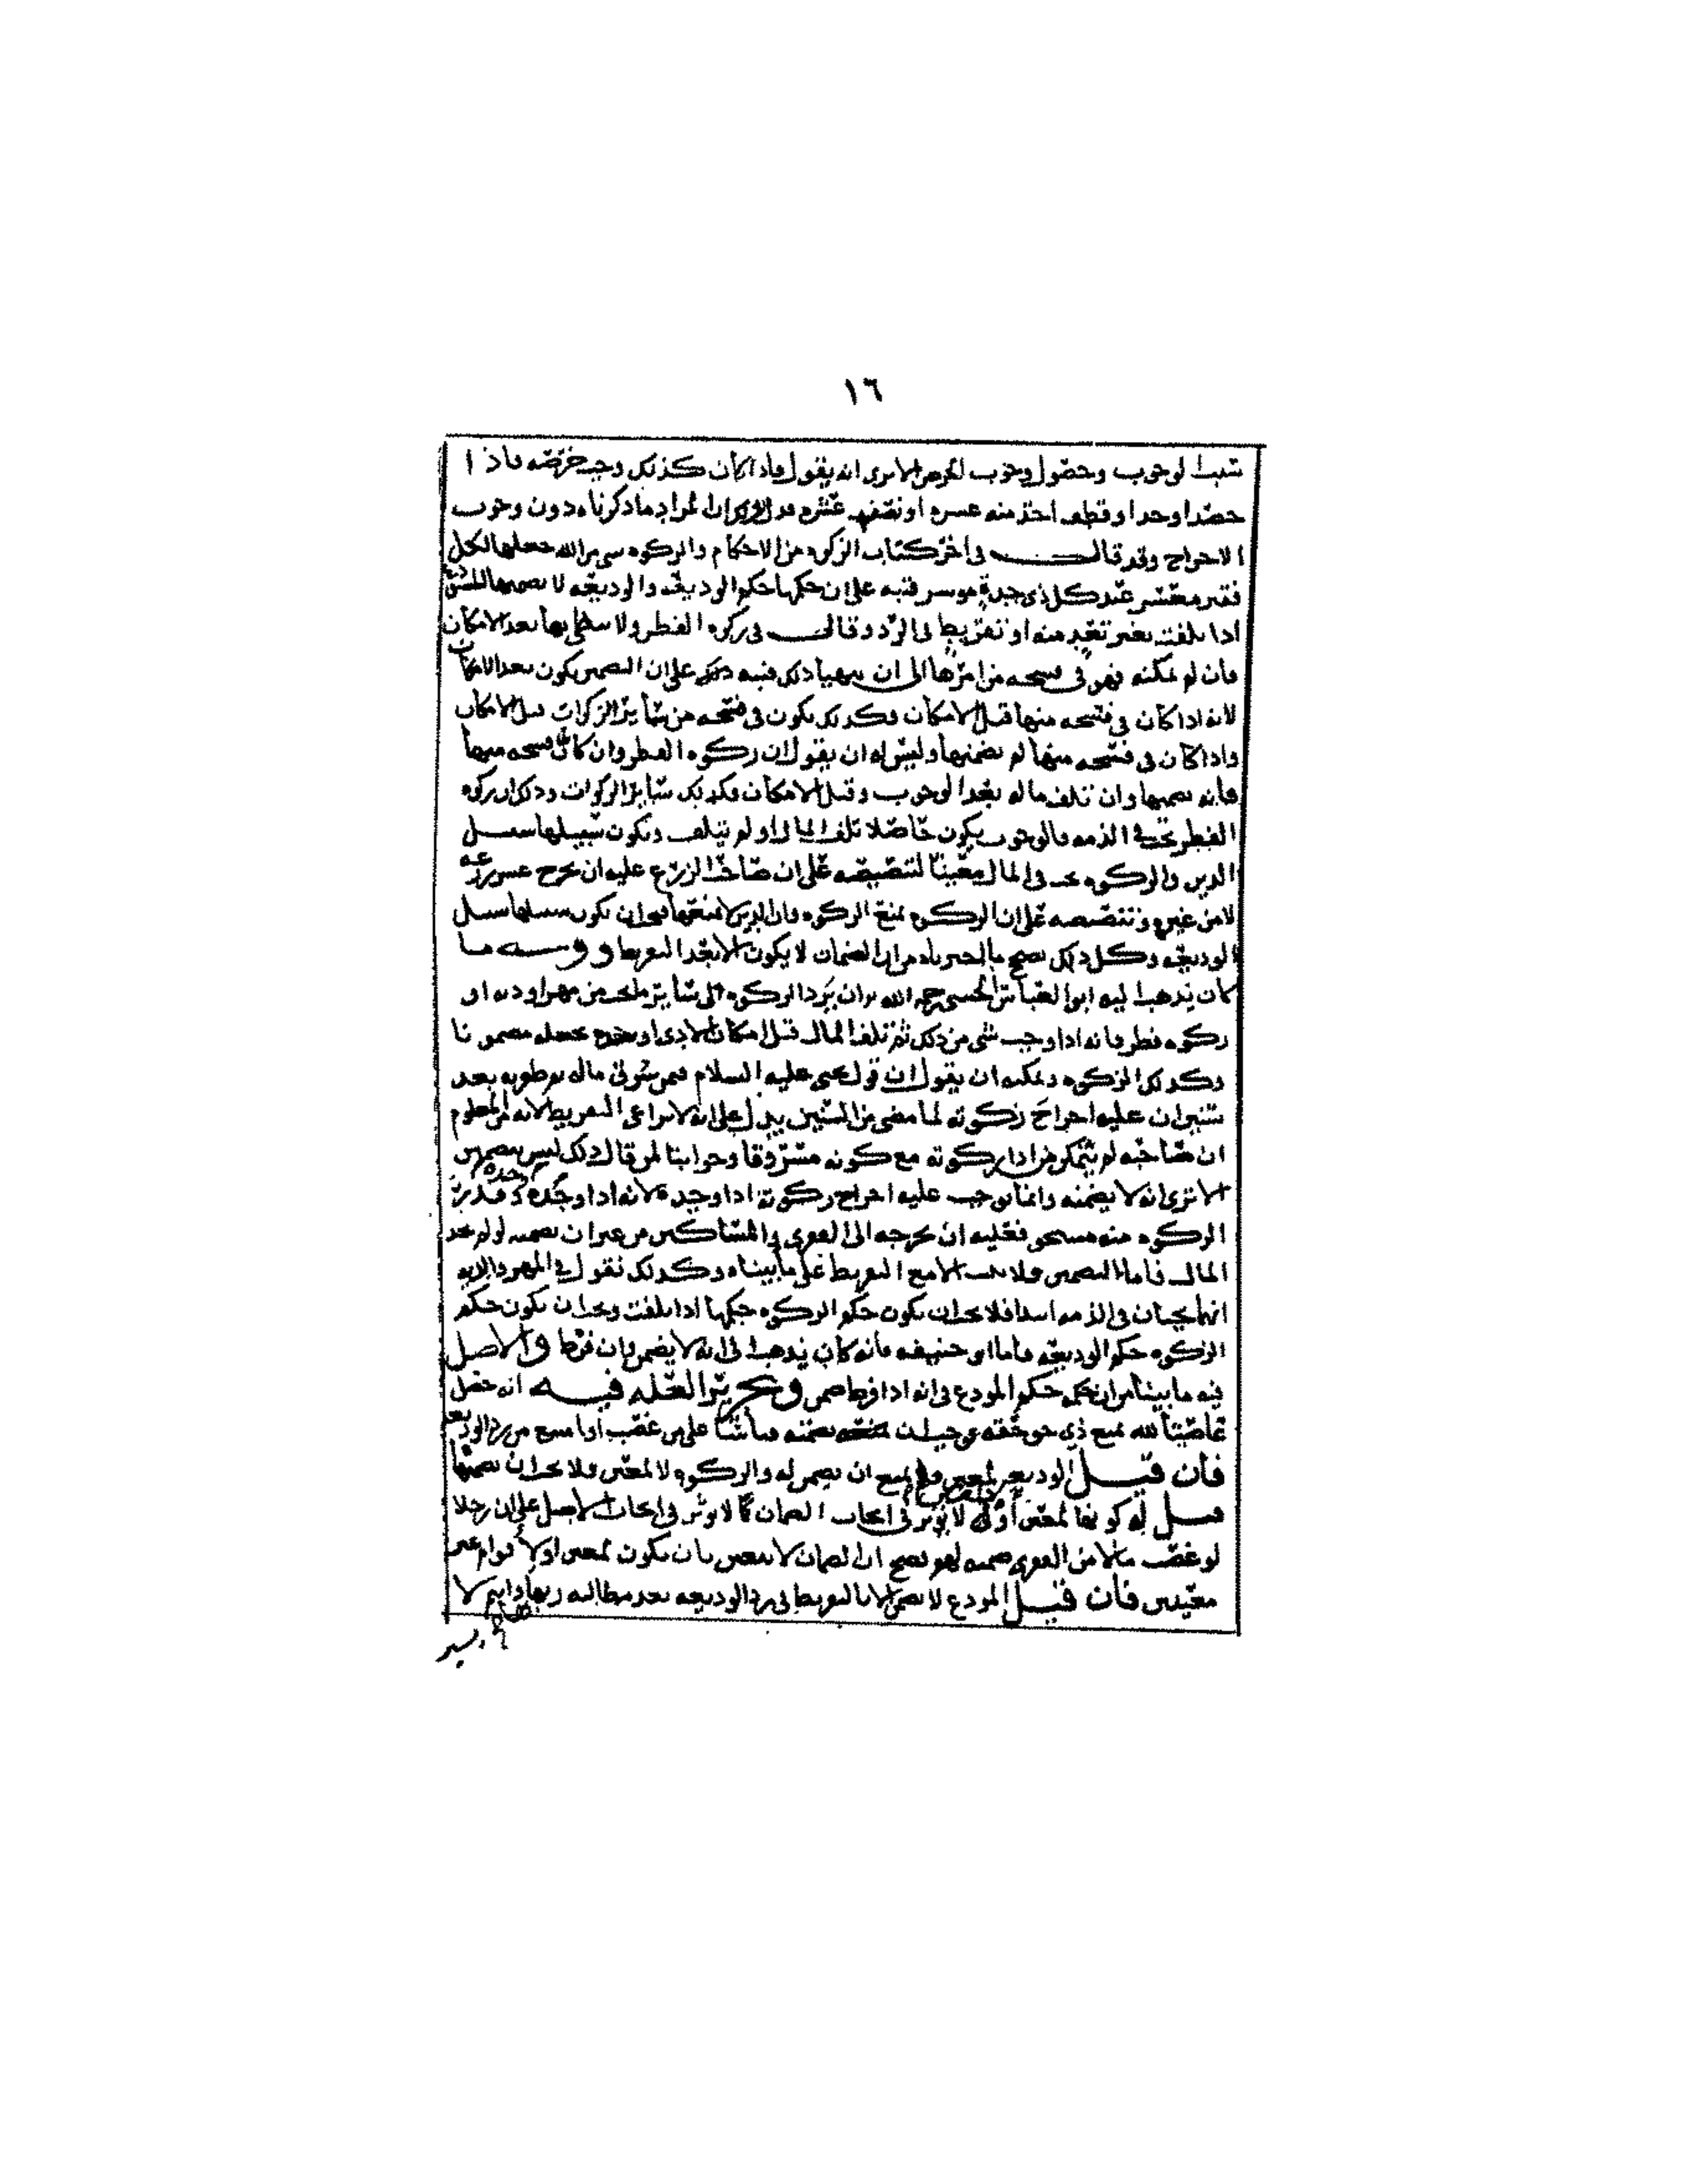 ١٦
لوجوب وحصول وجوب الاترى انه يقول فاذا كان كذلك وجب خرصه فاذا
حصد او جد او قطف اخذ منه عشره او نصف عشره المراد ما ذكرناه دون وجوب
الاخراج وقد قال في اخر كتاب الزكوه من الاحكام والزكوه شي من الله جعلها لكل
فقير معسر عند كل ذي جدة موسر فنبه على ان حكمها حكم الوديعه والوديعه لا يضمنها
اذا تلفت بغير تعد منه او تفريط في الرد وقال في زكوه الفطر ولا بها بعد الامكان
فان لم يمكنه فهو في فسحه من امرها الى ان يتهيا ذلك فنبه بذلك على ان التضمين يكون بعد الامكان
لانه اذا كان في فسحه منها قبل الامكان فكذلك يكون في فسحه من سائر الزكوات قبل الامكان
واذا كان في فسحه منها لم يضمنها وليس له ان يقول ان زكوه الفطر وان كان في فسحه منها
فانه يضمنها وان تلف ماله بعد الوجوب وقبل الامكان فكذلك سائر الزكوات وذلك ان زكوه
الفطر تجب في الذمه فالوجوب يكون حاصلا تلف المال او لم يتلف وتكون سبيلها سبيل
الدين والزكوه تجب في المال معينا لتنصيصه على ان صاحب الزرع عليه ان يخرج عشر زرعه
لا من غيره وتنصيصه على ان الزكوه تمنع الزكوه وان الدين لا يمنعها فيجب ان تكون سبيلها سبيل
الوديعه وكل ذلك يصحح ما اخترناه من ان الضمان لا يكون الا بعد التفريط ما
كان يذهب اليه ابو العباس الحسني رحمه الله ان يرد الزكوه الى سائر ما يجب من مهر او دين او
زكوه فطر فانه اذا وجب شي من ذلك ثم تلف المال قبل امكان الادى او بعده مضمونا
وكذلك الزكوه ويمكنه ان يقول ان قول يحيى عليه السلام فيمن سرق ماله ثم ظفر به بعد
سنين ان عليه اخراج زكوته لما مضى من السنين يدل على انه لا يراعي التفريط لانه من المعلوم
ان صاحبه لم يتمكن من ادا زكوته مع كونه مسروقا وجوابنا لمن قال ذلك ليس بتضمين
الا ترى انه لا يضمنه وانما يوجب عليه اخراج زكوته اذا وجده لانه اذا وجده وقدر
الزكوه منه مستحق فعليه ان يخرجه الى الفقرى والمساكين من غير ان يضمنه لو لم يجد
المال فاما التضمين فلا يجب الا مع التفريط على ما بيناه وكذلك نقول في المهر والديه
انهما يجبان في الذمه ابتدا فلا يجب ان يكون حكم الزكوه حكمها اذا تلفت ويجب ان يكون حكم
الزكوه حكم الوديعه فاما ابو حنيفه فانه كان يذهب الى انه لا يضمن وان فرط والاصل
فيه ما بينا من ان حكمه حكم المودع في انه اذا فرط ضمن وتحرير العله فيه انه حصل
عاصيا لله بمنع ذي حق حقه فوجب ان يضمنه قياسا على من غصب او امتنع من رد الوديعه
فان قيل الوديعه لمعين ولم يمتنع ان يضمن له والزكوه لا لمعين فلا يجب ان يضمنها
قيل له كونها لمعين او لا لا يوثر في ايجاب الضمان كما لا يوثر في ايجاب الاصل على ان رجلا
لو غصب مالا من الفقرى ضمنه لهم فصح ان الضمان لا يتغير بان يكون لمعين او لاقوام غير
معينين فان قيل المودع لا يضمن الا بالتفريط في رد الوديعه بعد مطالبه ربها وانتم لا